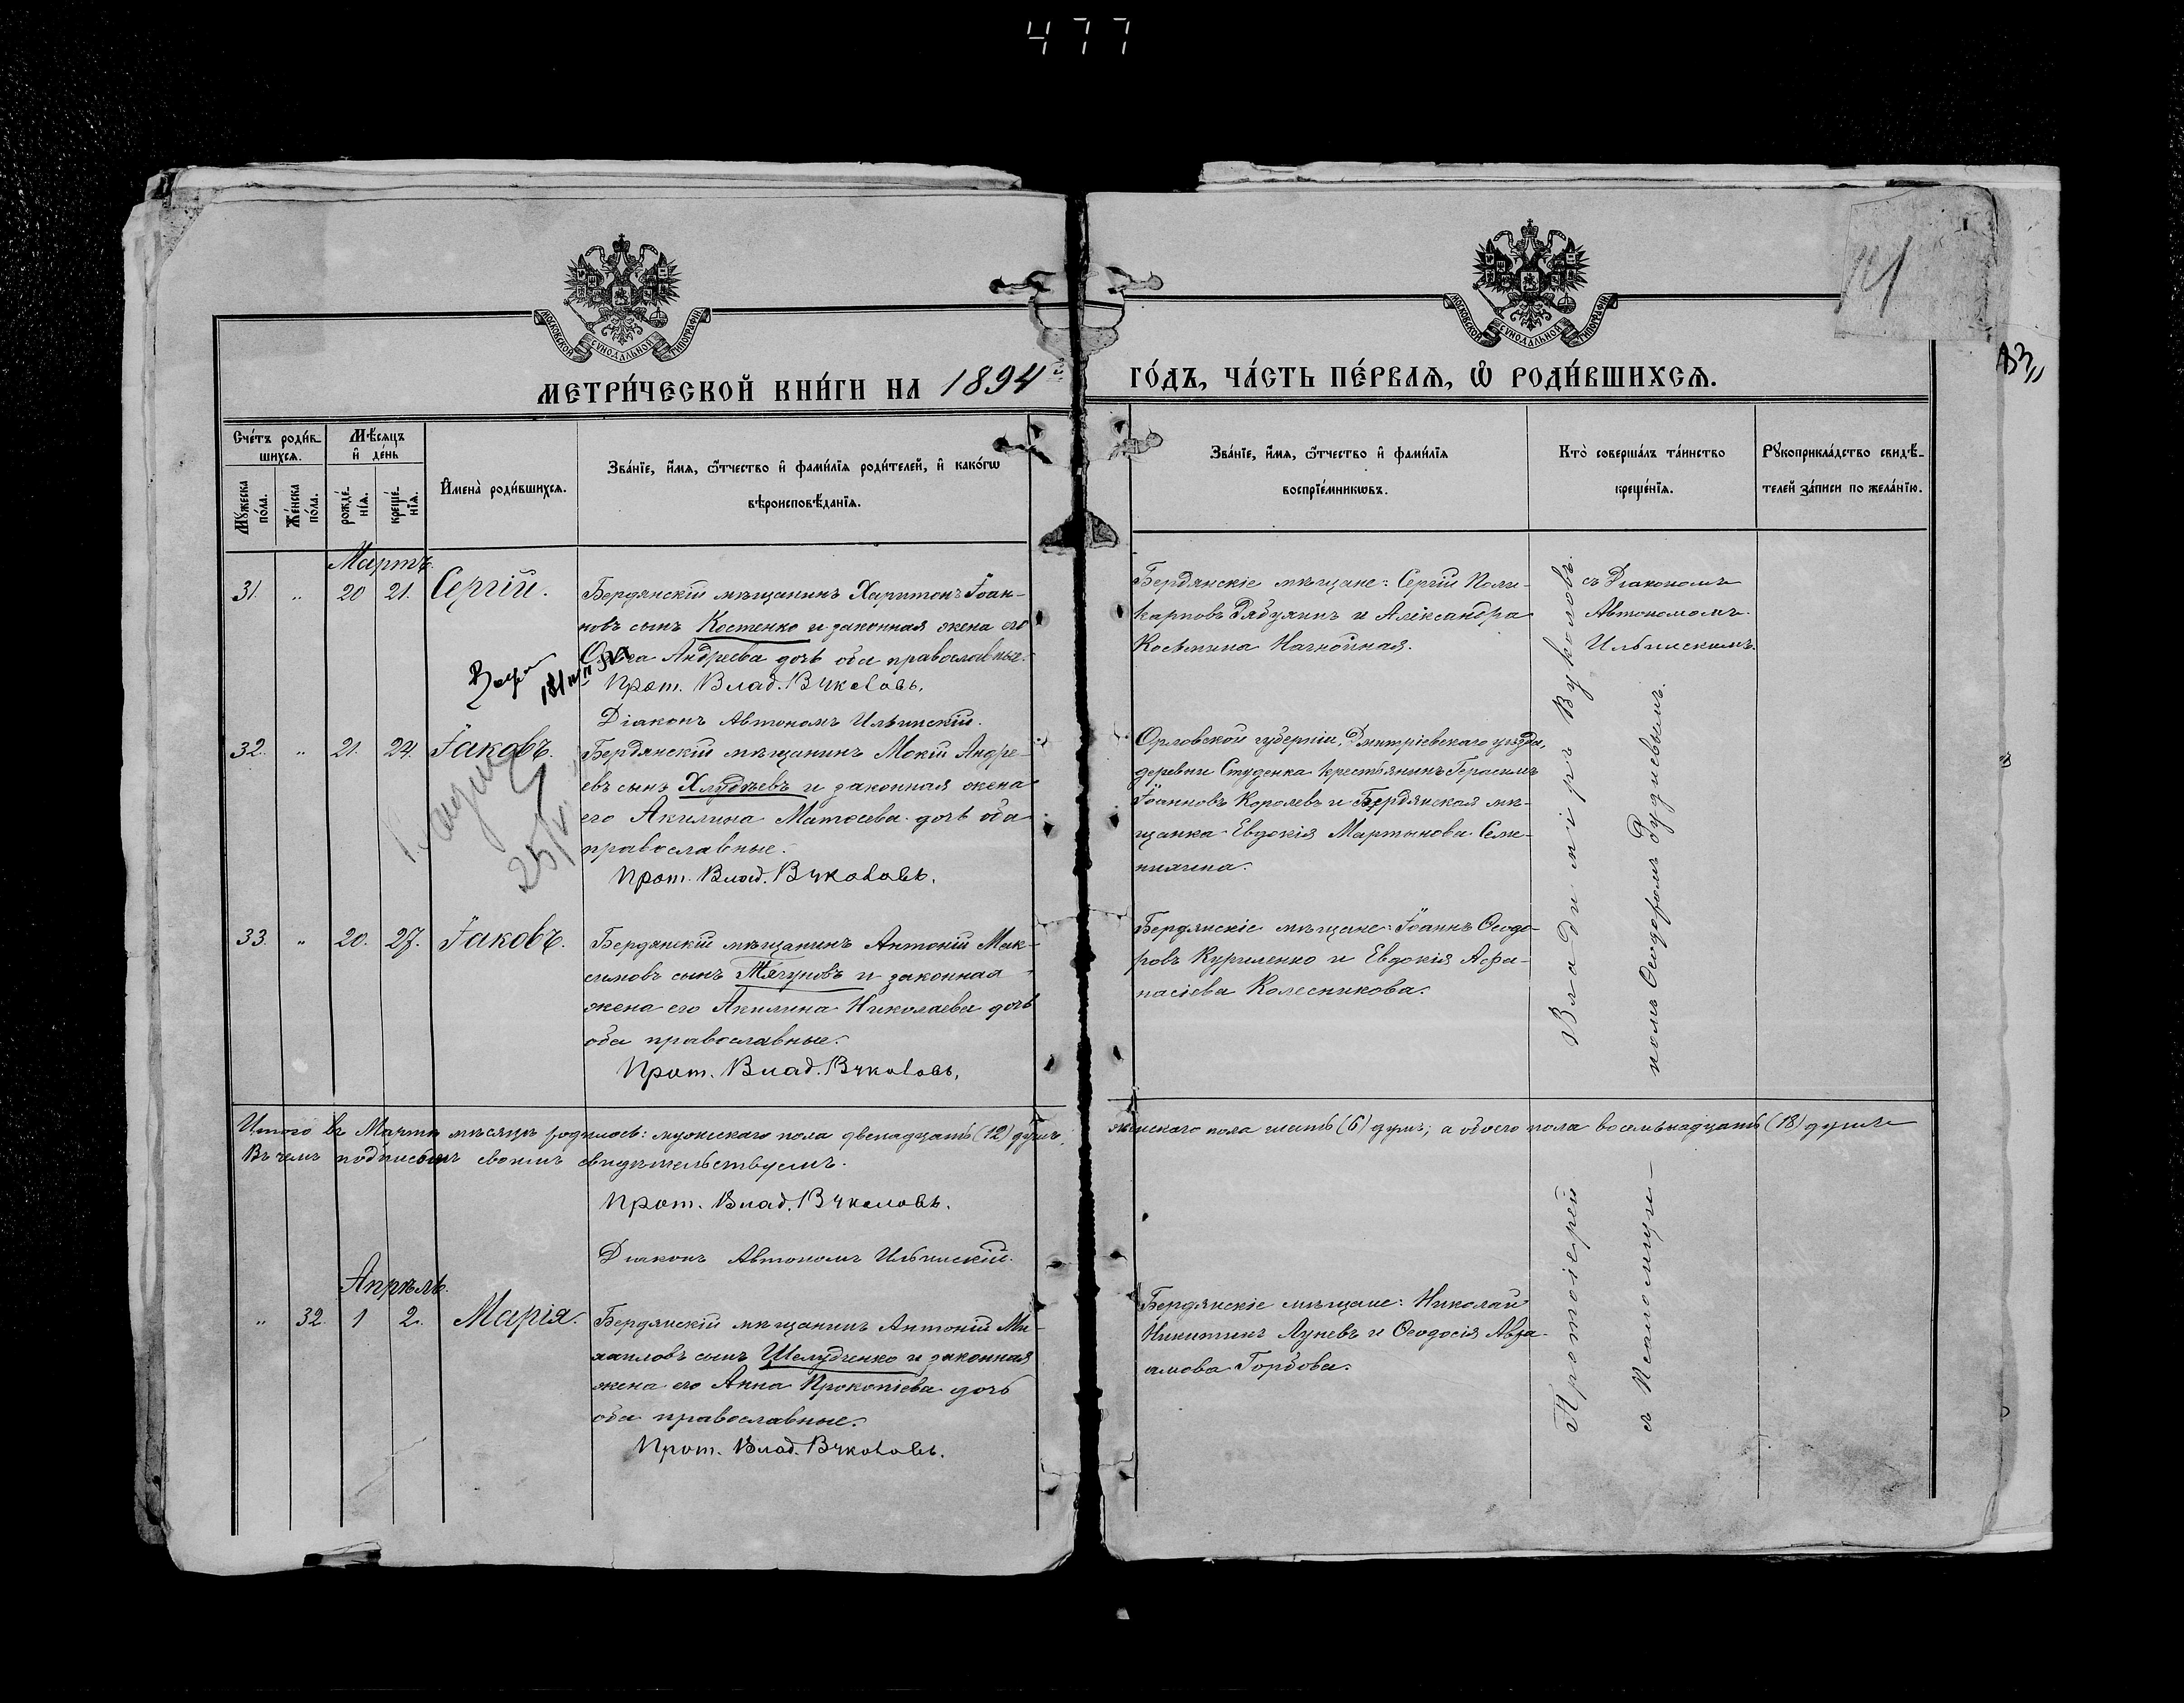 477
МОСКОВСКОЙ СѴНОДАЛЬНОЙ ТИПОГРАФІИ
МОСКОВСКОЙ СѴНОДАЛЬНОЙ ТИПОГРАФІИ
83
МЕТРИ́ЧЕСКОЙ КНИ́ГИ НА 1894й ГО́ДЪ, ЧА́СТЬ ПЕ́РВАѦ, Ѡ҆ РОДИ́ВШИХСѦ.
Сче́тъ роди́в-
шихсѧ.
Мꙋ́жеска по́ла.
Же́нска по́ла.
Мѣ́сѧцъ
и҆ де́нь
рожде́-
нїѧ.
креще́-
нїѧ.
И҆мена̀ роди́вшихсѧ.
Зва́нїе, и҆́мѧ, ѻ҆́тчество и҆ фами́лїѧ роди́телей, и҆ како́гѡ
вѣроисповѣ́данїѧ.
Зва́нїе, и҆́мѧ, ѻ҆́тчество и҆ фами́лїѧ
воспрїе́мникѡвъ.
Кто̀ соверша́лъ та́инство
креще́нїѧ.
Рꙋкоприкла́дство свидѣ́-
телей за́писи по жела́нїю.
Мартъ.
31. „ 20 21. Сергій.
Бердянскій мѣщанинъ Харитонъ Іоан-
новъ сынъ Костенко и законная жена его
Ольга Андреева дочь оба православные.
Прот. Влад. Вуколовъ.
Діаконъ Автономъ Ильинскій.
Бердянскіе мѣщане: Сергій Поли-
карповъ Рябухинъ и Александра
Косьмина
съ Діакономъ
Автономомъ
Ильинскимъ.
32. „ 21. 24. Іаковъ.
Бердянскій мѣщанинъ Мокій Андре-
евъ сынъ Хлудѣевъ и законная жена
его Акилина Матѳеева дочь оба
православные.
Прот. Влад. Вуколовъ.
Орловской губерніи, Дмитріевскаго уѣзда,
деревни Студенка крестьянинъ Герасимъ
Іоанновъ Королевъ и Бердянская мѣ-
щанка Евдокія Мартынова Семе-
нихина.
33. „ 20. 27. Іаковъ.
Бердянскій мѣщанинъ Антоній Мак-
симовъ сынъ Тягуновъ и законная
жена его Акилина Николаева дочь
оба православные.
Прот. Влад. Вуколовъ.
Бердянскіе мѣщане: Іоаннъ Ѳеодо-
ровъ Куриленко и Евдокія Аѳа-
насіева Колесникова.
Итого въ Мартѣ мѣсяцѣ родилось: мужескаго пола двенадцать (12) душъ, женскаго пола шесть (6) душъ; а обоего пола восемьнадцать (18) душъ
Въ чемъ подписомъ своимъ свидѣтельствуемъ.
Прот. Влад. Вуколовъ.
Діаконъ Автономъ Ильинскій.
Апрѣль.
„ 32. 1 2. Марія.
Бердянскій мѣщанинъ Антоній Ми-
хаиловъ сынъ Шелудченко и законная
жена его Анна Прокопіева дочь
оба православные.
Прот. Влад. Вуколовъ.
Бердянскіе мѣщане: Николай
Никитинъ Луневъ и Ѳеодосія Авра-
амова Горбова.
Протоіерей Владиміръ Вуколовъ
съ Псаломщи-
комъ Ѳеодоромъ Рудневымъ.